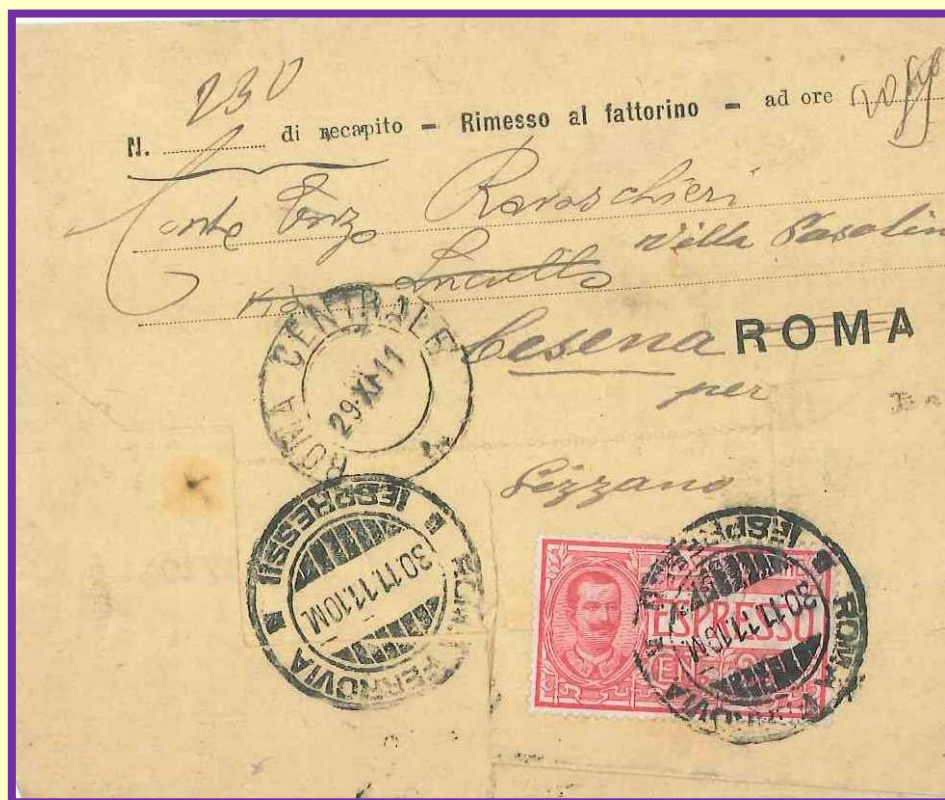 230
N. di recapito - Rimesso al fattorino - ad ore
Conte Enzo Ravaschieri
Via Villa Pasolin
Cesena ROMA
per
Lizzano
ROMA CENTRALE
29·XI·11
ROMA FERROVIA (ESPRESSI)
30.11.11.10M
ESPRESSO
ROMA FERROVIA (ESPRESSI)
30.11.11.10M